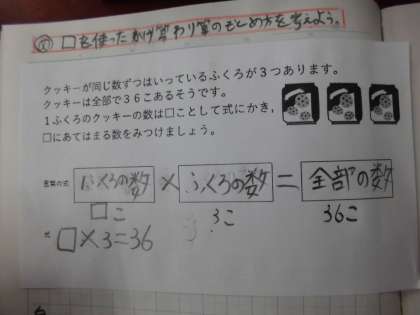 ◎ □を使ったかけ算わり算のもとめ方を考えよう。
クッキーが同じ数ずつはいっているふくろが３つあります。
クッキーは全部で３６こあるそうです。
１ふくろのクッキーの数は□ことして式にかき、
□にあてはまる数をみつけましょう。
言葉の式 1ふくろの数 × ふくろの数 = 全部の数
□こ 3こ 36こ
式 □×3=36